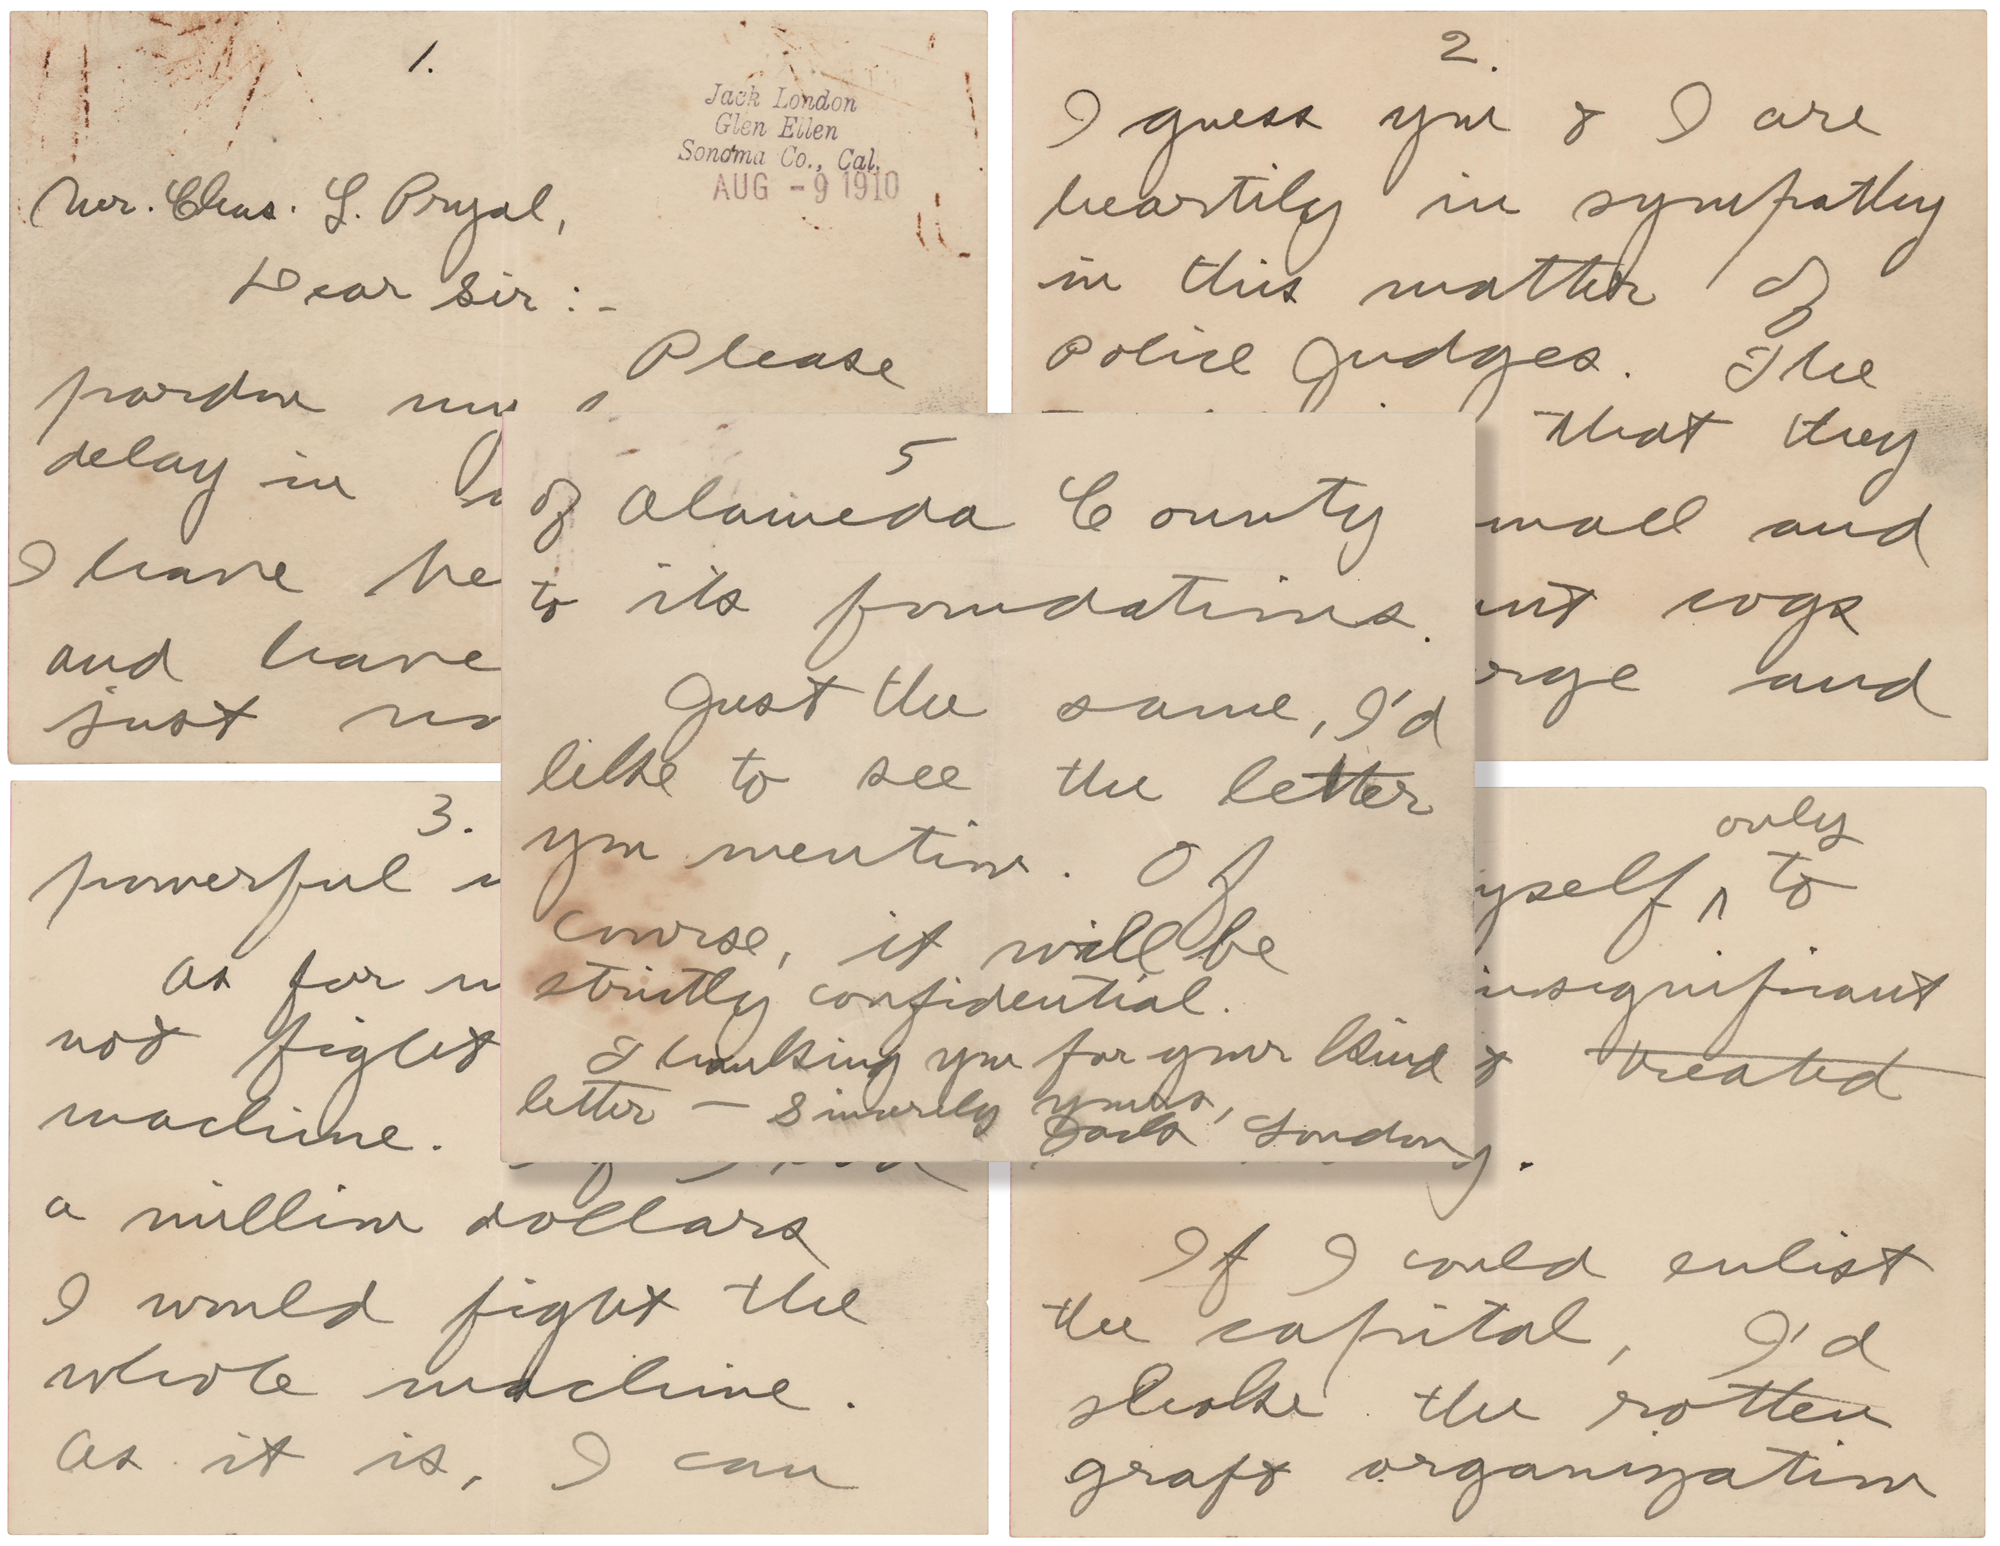 1.
Jack London
Glen Ellen
Sonoma Co., Cal.
AUG - 9 1910
Mr. Chas. L. Pryal,
Dear Sir :-
Please
pardon my
delay in
I have be
and have
just
2.
I guess you & I are
heartily in sympathy
in this matter of
Police Judges. The
that they
mall and
ant cogs
rge and
3.
powerful
As for
not fight
machine.
a million dollars
I would fight the
whole machine.
As it is, I can
only
yself ^ to
insignificant
& treated
If I could enlist
the capital, I'd
shake the rotten
graft organization
5
of Alameda County
to its foundations.
Just the same, I'd
like to see the letter
you mention. Of
course, it will be
strictly confidential.
Thanking you for your kind
letter — Sincerely yours,
Jack London